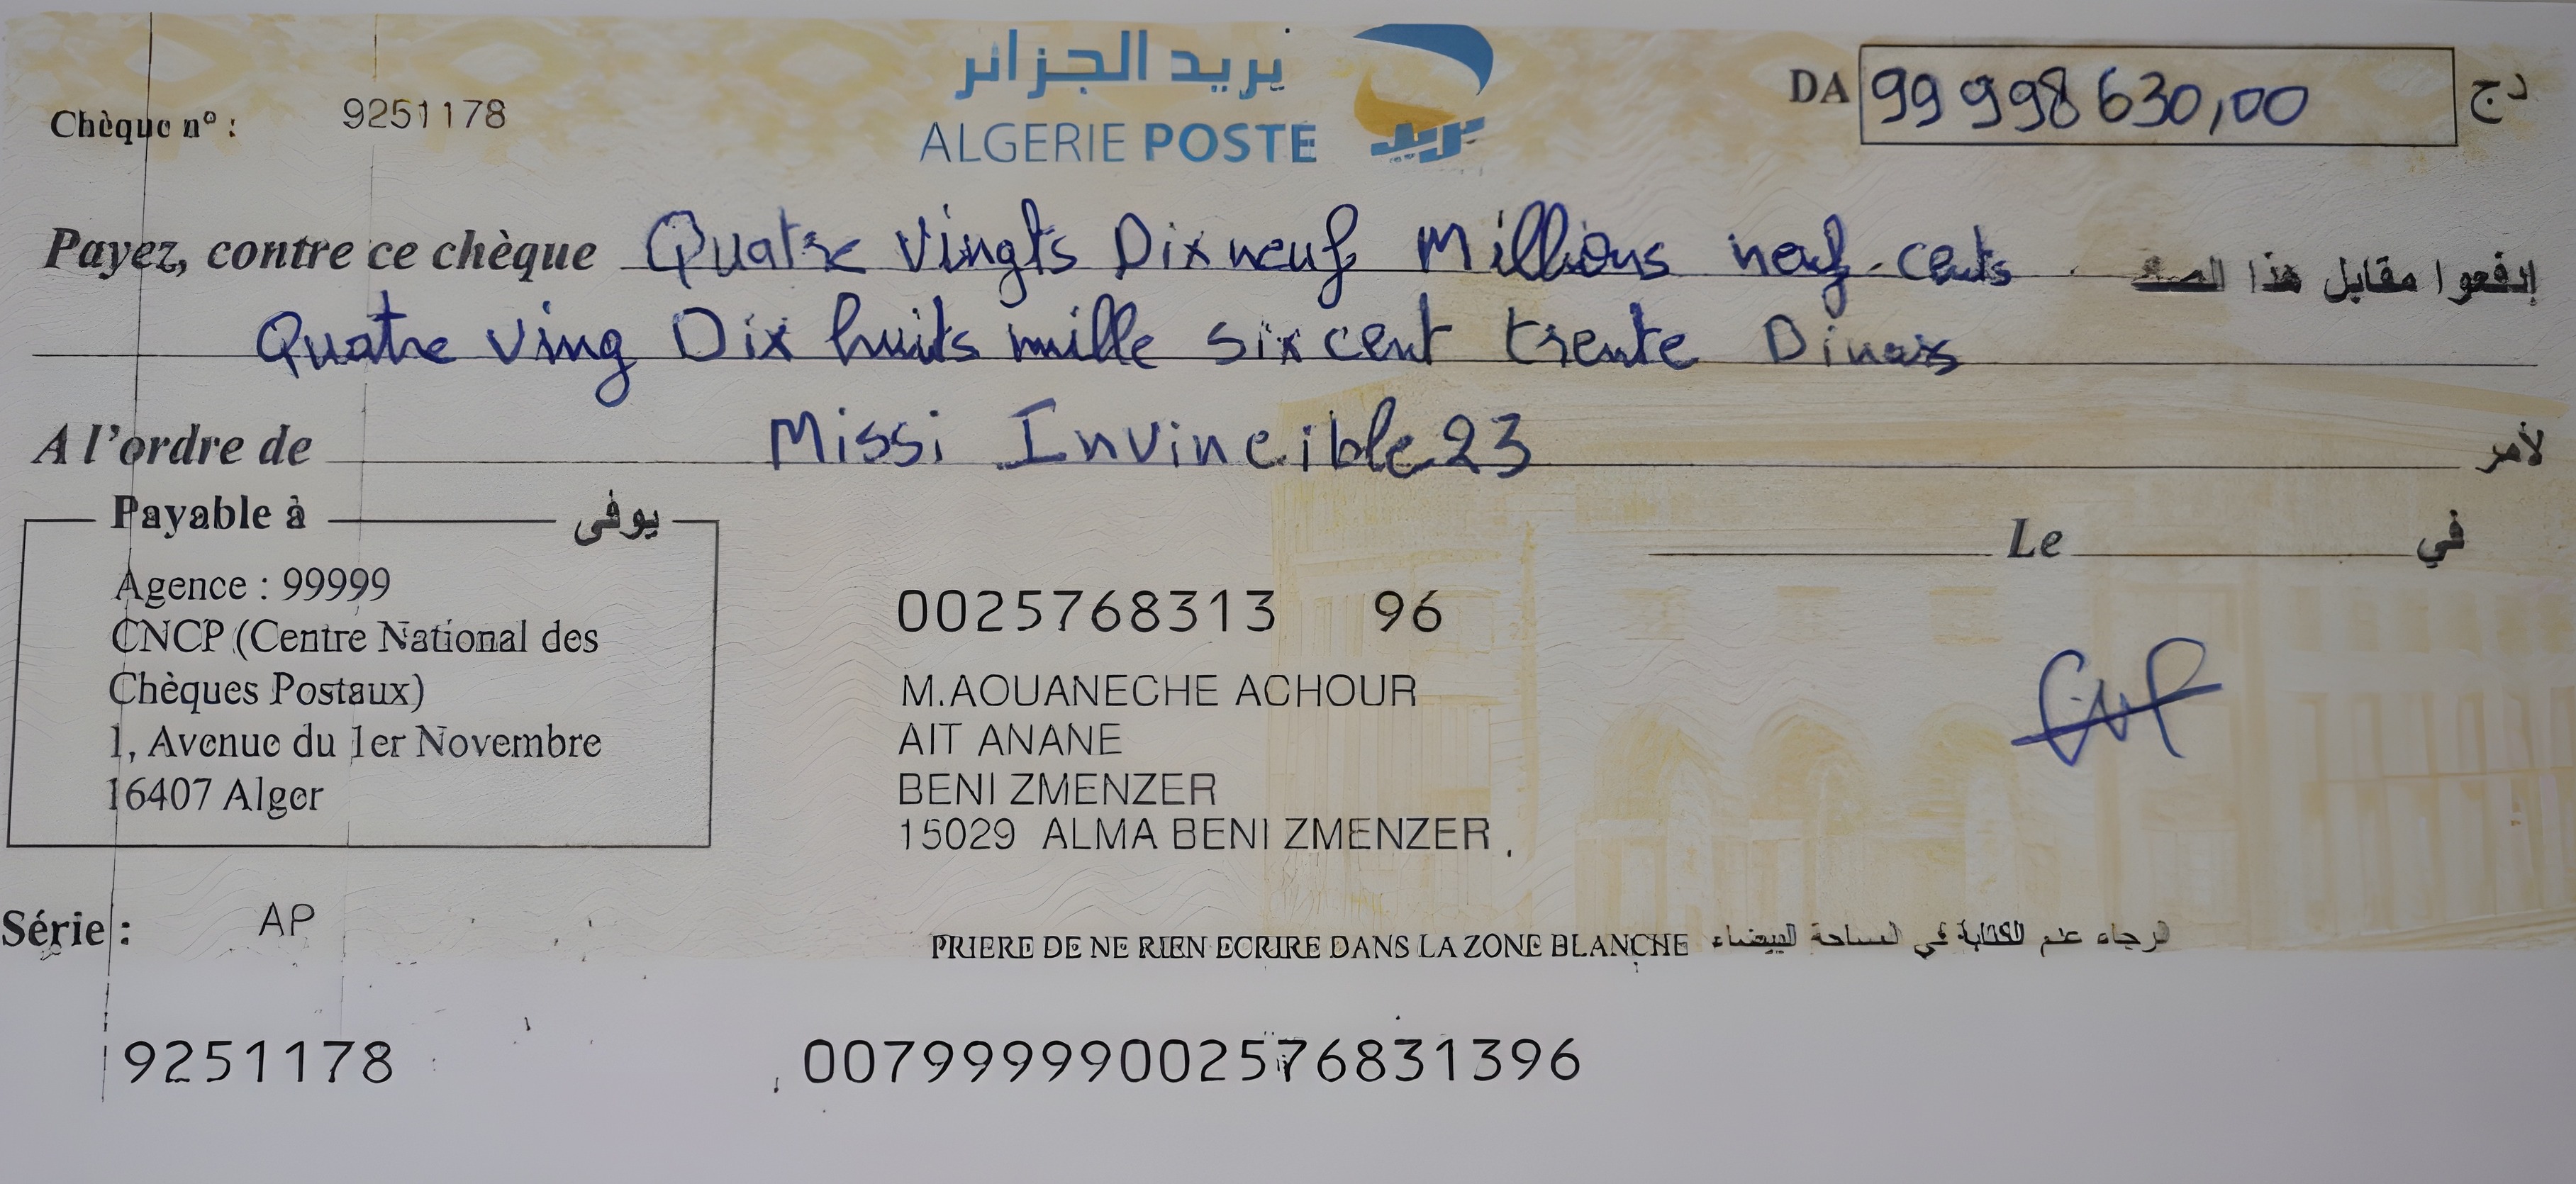 بريد الجزائر
ALGERIE POSTE
بريد
Chèque n° : 9251178
DA 99 998 630,00 دج
Payez, contre ce chèque Quatre Vingts Dix neuf Millions neuf cents إدفعوا مقابل هذا الصك
Quatre Ving Dix huits mille six cent trente Dinars
A l'ordre de Missi Invincible 23 لأمر
Payable à يوفى
Agence : 99999
CNCP (Centre National des
Chèques Postaux)
1, Avenue du 1er Novembre
16407 Alger
Le في
0025768313 96
M.AOUANECHE ACHOUR
AIT ANANE
BENI ZMENZER
15029 ALMA BENI ZMENZER
Série : AP
PRIERE DE NE RIEN ECRIRE DANS LA ZONE BLANCHE الرجاء عدم الكتابة في المساحة البيضاء
9251178 00799999002576831396